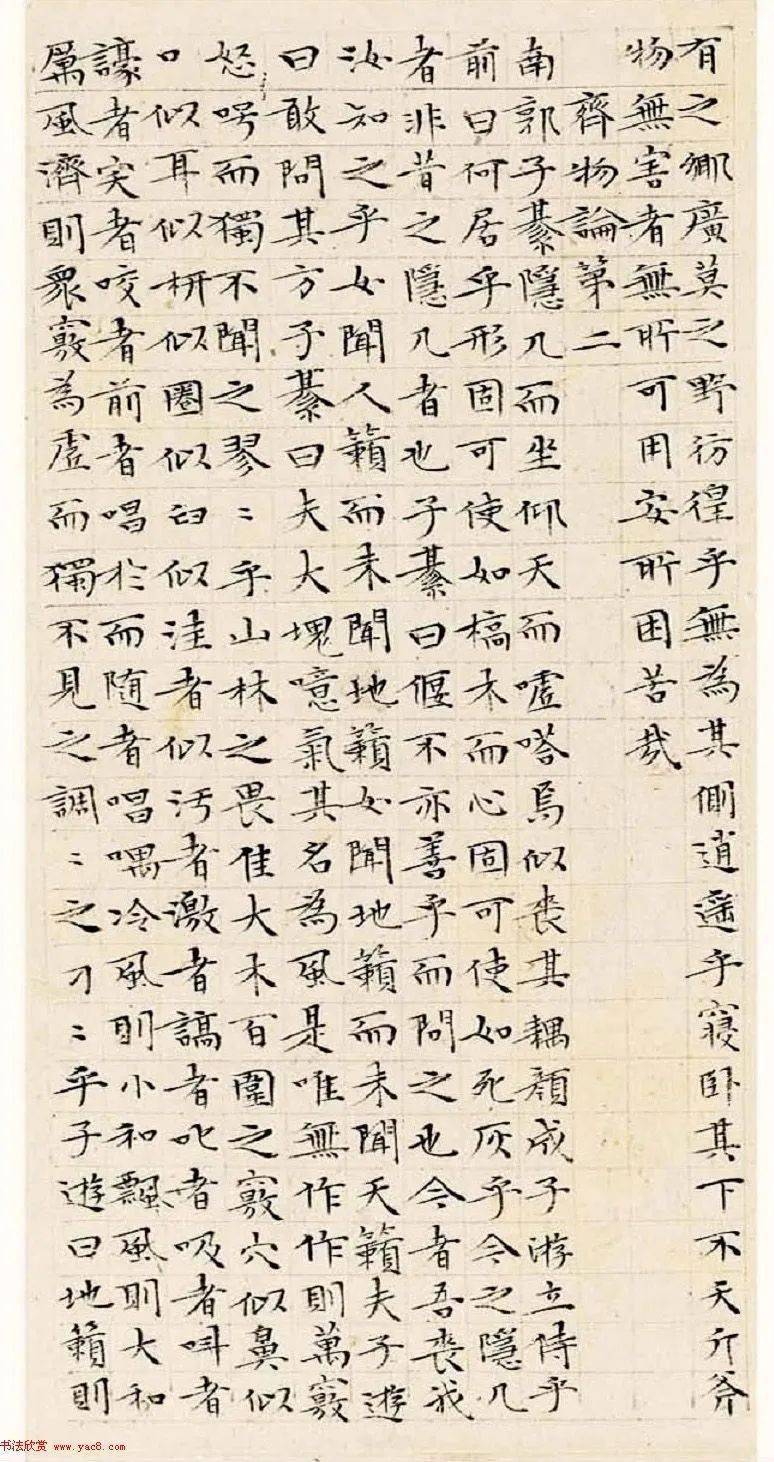 有之鄉廣莫之野彷徨乎無為其側逍遥乎寢卧其下不夭斤斧
物無害者無所可用安所困苦哉
齊物論第二
南郭子綦隱几而坐仰天而嘘嗒焉似喪其耦顏成子游立侍乎
前曰何居乎形固可使如槁木而心固可使如死灰乎今之隱几
者非昔之隱几者也子綦曰偃不亦善乎而問之也今者吾喪我
汝知之乎女聞人籟而未聞地籟女聞地籟而未聞天籟夫子遊
曰敢問其方子綦曰夫大塊噫氣其名為風是唯無作作則萬竅
怒呺而獨不聞之翏〻乎山林之畏隹大木百圍之竅穴似鼻似
口似耳似枅似圈似臼似洼者似污者激者謞者叱者吸者叫者
譹者宎者咬者前者唱於而随者唱喁冷風則小和飄風則大和
厲風濟則眾竅為虚而獨不見之調〻之刁〻乎子遊曰地籟則
书法欣赏 www.yac8.com